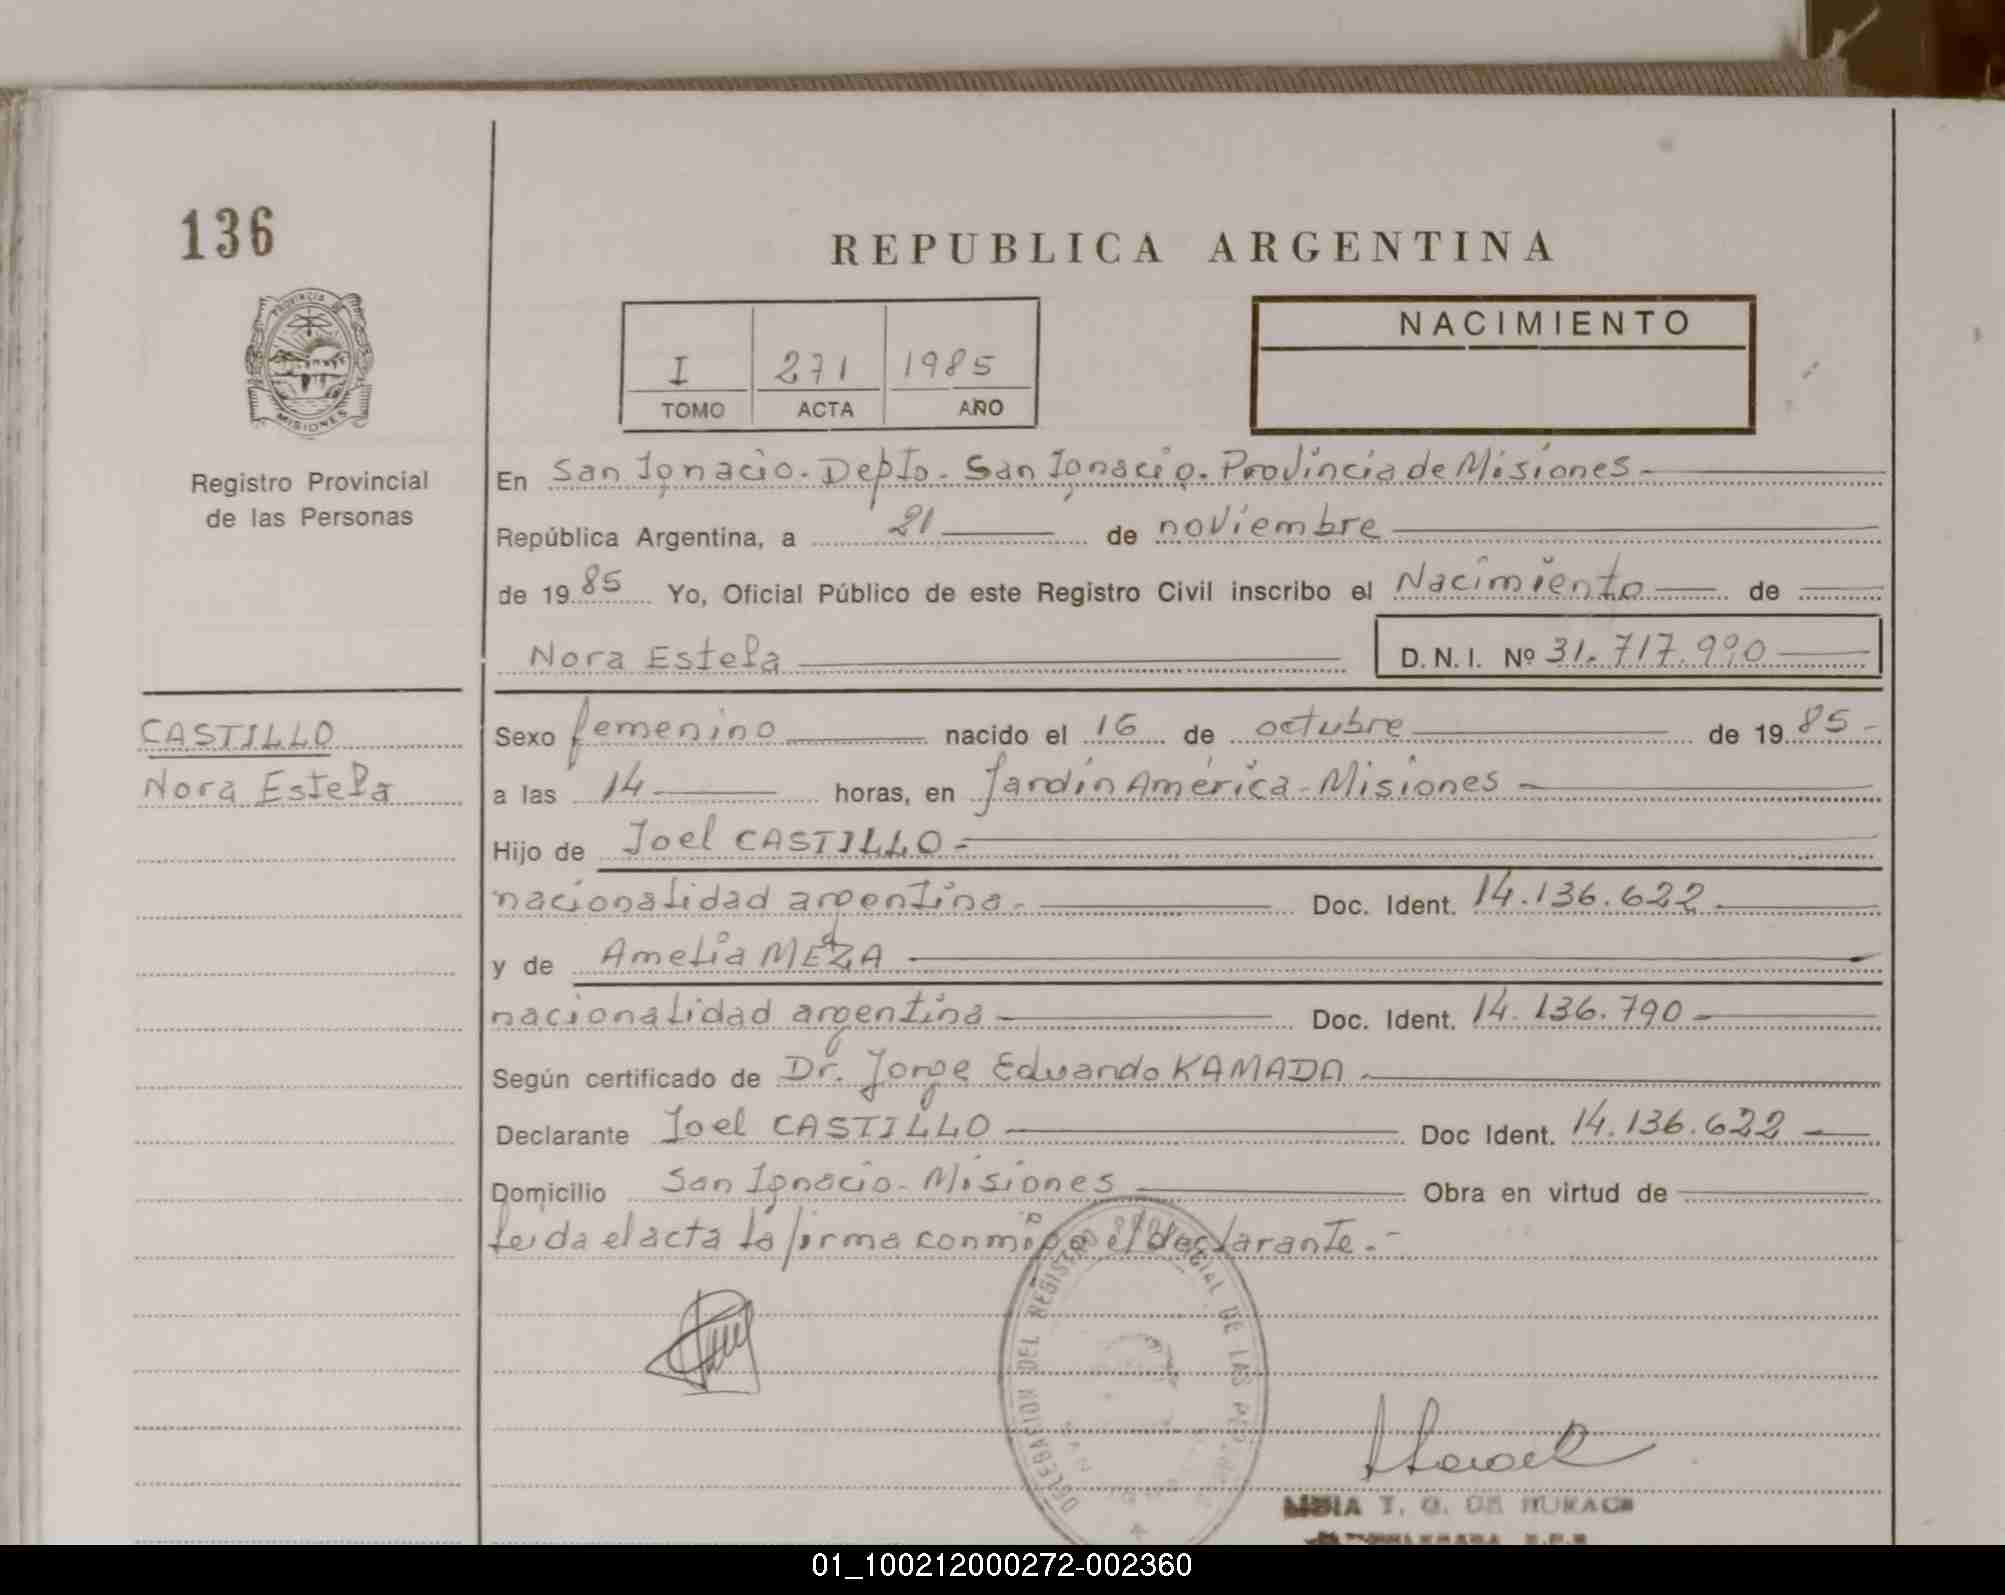 136
PROVINCIA DE
MISIONES
Registro Provincial
de las Personas
CASTILLO
Nora Estela
REPUBLICA ARGENTINA
I 271 1985
TOMO ACTA AÑO
NACIMIENTO
En San Ignacio. Depto. San Ignacio. Provincia de Misiones.
República Argentina, a 21 de noviembre
de 1985 Yo, Oficial Público de este Registro Civil inscribo el Nacimiento de
Nora Estela D.N.I. Nº 31.717.990
Sexo femenino nacido el 16 de octubre de 1985
a las 14 horas, en Jardín América - Misiones
Hijo de Joel CASTILLO
nacionalidad argentina. Doc. Ident. 14.136.622
y de Amelia MEZA
nacionalidad argentina Doc. Ident. 14.136.790
Según certificado de Dr. Jorge Eduardo KAMADA
Declarante Joel CASTILLO Doc Ident. 14.136.622
Domicilio San Ignacio - Misiones Obra en virtud de
Leida el acta la firma conmigo el declarante.-
DELEGACION DEL REGISTRO DE LAS
T. G. DE
01_100212000272-002360